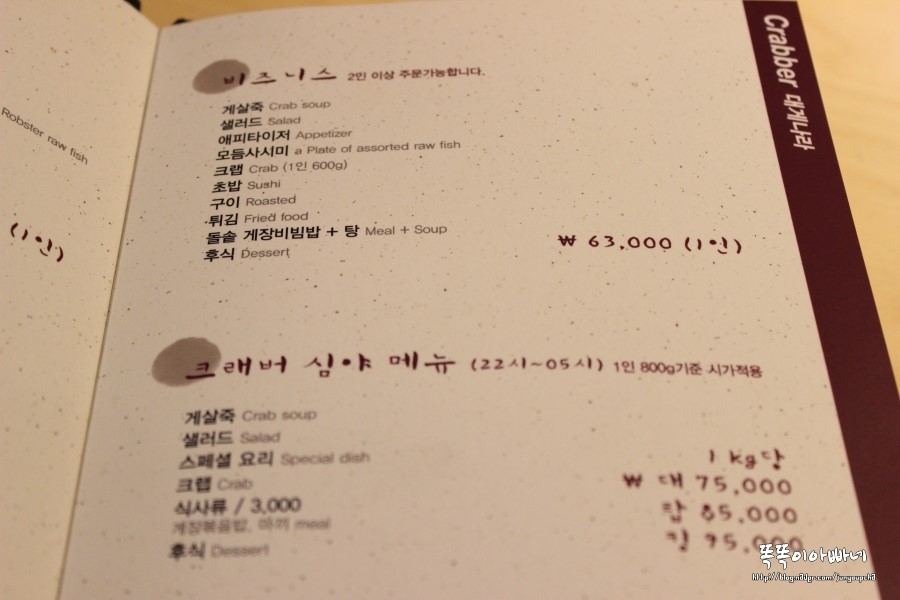 Robster raw fish
(1인)
Crabber 대게나라
비즈니스 2인 이상 주문가능합니다.
게살죽 Crab soup
샐러드 Salad
애피타이저 Appetizer
모듬사시미 a Plate of assorted raw fish
크랩 Crab (1인 600g)
초밥 Sushi
구이 Roasted
튀김 Fried food
돌솥 게장비빔밥 + 탕 Meal + Soup
후식 Dessert
₩ 63,000 (1인)
크래버 심야 메뉴 (22시~05시) 1인 800g기준 시가적용
게살죽 Crab soup
샐러드 Salad
스페셜 요리 Special dish
크랩 Crab
식사류 / 3,000
게장볶음밥, 마끼 meal
후식 Dessert
1 kg당
₩ 대 75,000
랍 85,000
킹 95,000
똑똑이아빠네